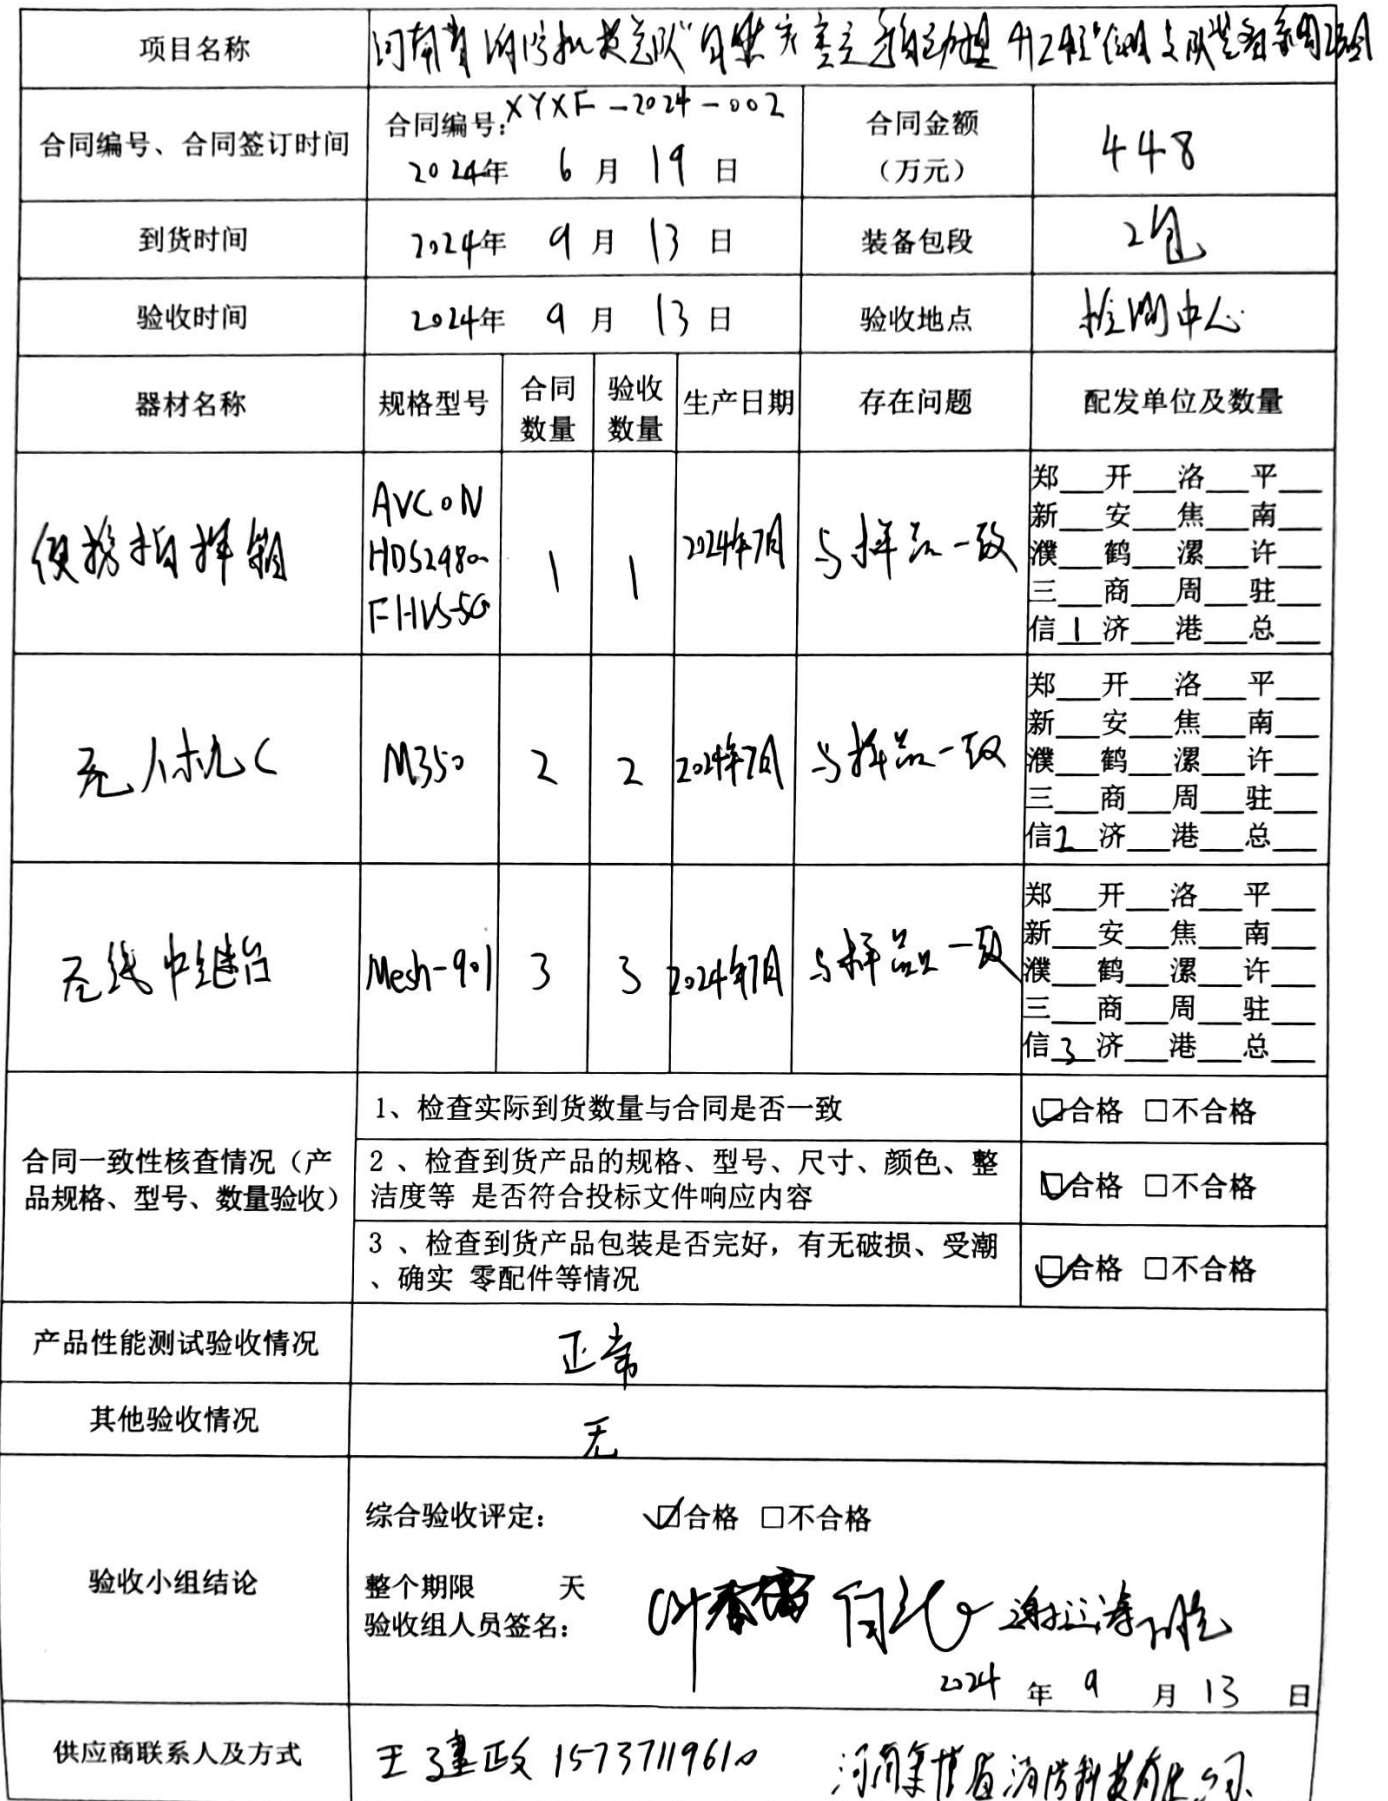 项目名称
河南省消防救援总队"自然灾害应急能力提升工程"信阳支队装备采购项目
合同编号、合同签订时间
合同编号:XYXF-2024-002
2024年 6 月 19 日
合同金额
（万元）
448
到货时间
2024年 9 月 13 日
装备包段
2包
验收时间
2024年 9 月 13 日
验收地点
检测中心
器材名称
规格型号
合同
数量
验收
数量
生产日期
存在问题
配发单位及数量
便携指挥箱
AVCON
HDS2980
FHVS-5G
1
1
2024年7月
与样品一致
郑___开___洛___平___
新___安___焦___南___
濮___鹤___漯___许___
三___商___周___驻___
信_1_济___港___总___
无人机C
M350
2
2
2024年7月
与样品一致
郑___开___洛___平___
新___安___焦___南___
濮___鹤___漯___许___
三___商___周___驻___
信2__济___港___总___
无线中继台
Mesh-901
3
3
2024年7月
与样品一致
郑___开___洛___平___
新___安___焦___南___
濮___鹤___漯___许___
三___商___周___驻___
信_3_济___港___总___
合同一致性核查情况（产
品规格、型号、数量验收）
1、检查实际到货数量与合同是否一致
☑合格 □不合格
2 、检查到货产品的规格、型号、尺寸、颜色、整
洁度等 是否符合投标文件响应内容
☑合格 □不合格
3 、检查到货产品包装是否完好，有无破损、受潮
、确实 零配件等情况
☑合格 □不合格
产品性能测试验收情况
正常
其他验收情况
无
验收小组结论
综合验收评定： ☑合格 □不合格
整个期限 天
验收组人员签名：
2024 年 9 月 13 日
供应商联系人及方式
王建政 15737119610
消防科技有限公司